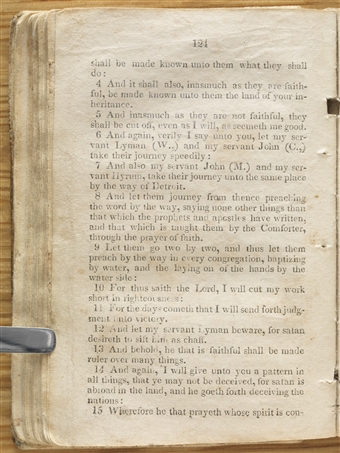 124
shall be made known unto them what they shall
do:
4 And it shall also, inasmuch as they are faith-
ful, be made known unto them the land of your in-
heritance.
5 And inasmuch as they are not faithful, they
shall be cut off, even as I will, as seemeth me good.
6 And again, verily I say unto you, let my ser-
vant Lyman (W.,) and my servant John (C.,)
take their journey speedily:
7 And also my servant John (M.) and my ser-
vant Hyrum, take their journey unto the same place
by the way of Detroit.
8 And let them journey from thence preaching
the word by the way, saying none other things than
that which the prophets and apostles have written,
and that which is taught them by the Comforter,
through the prayer of faith.
9 Let them go two by two, and thus let them
preach by the way in every congregation, baptizing
by water, and the laying on of the hands by the
water side:
10 For thus saith the Lord, I will cut my work
short in righteousness:
11 For the days cometh that I will send forth judg-
ment unto victory.
12 And let my servant Lyman beware, for satan
desireth to sift him as chaff.
13 And behold, he that is faithful shall be made
ruler over many things.
14 And again, I will give unto you a pattern in
all things, that ye may not be deceived, for satan is
abroad in the land, and he goeth forth deceiving the
nations:
15 Wherefore he that prayeth whose spirit is con-